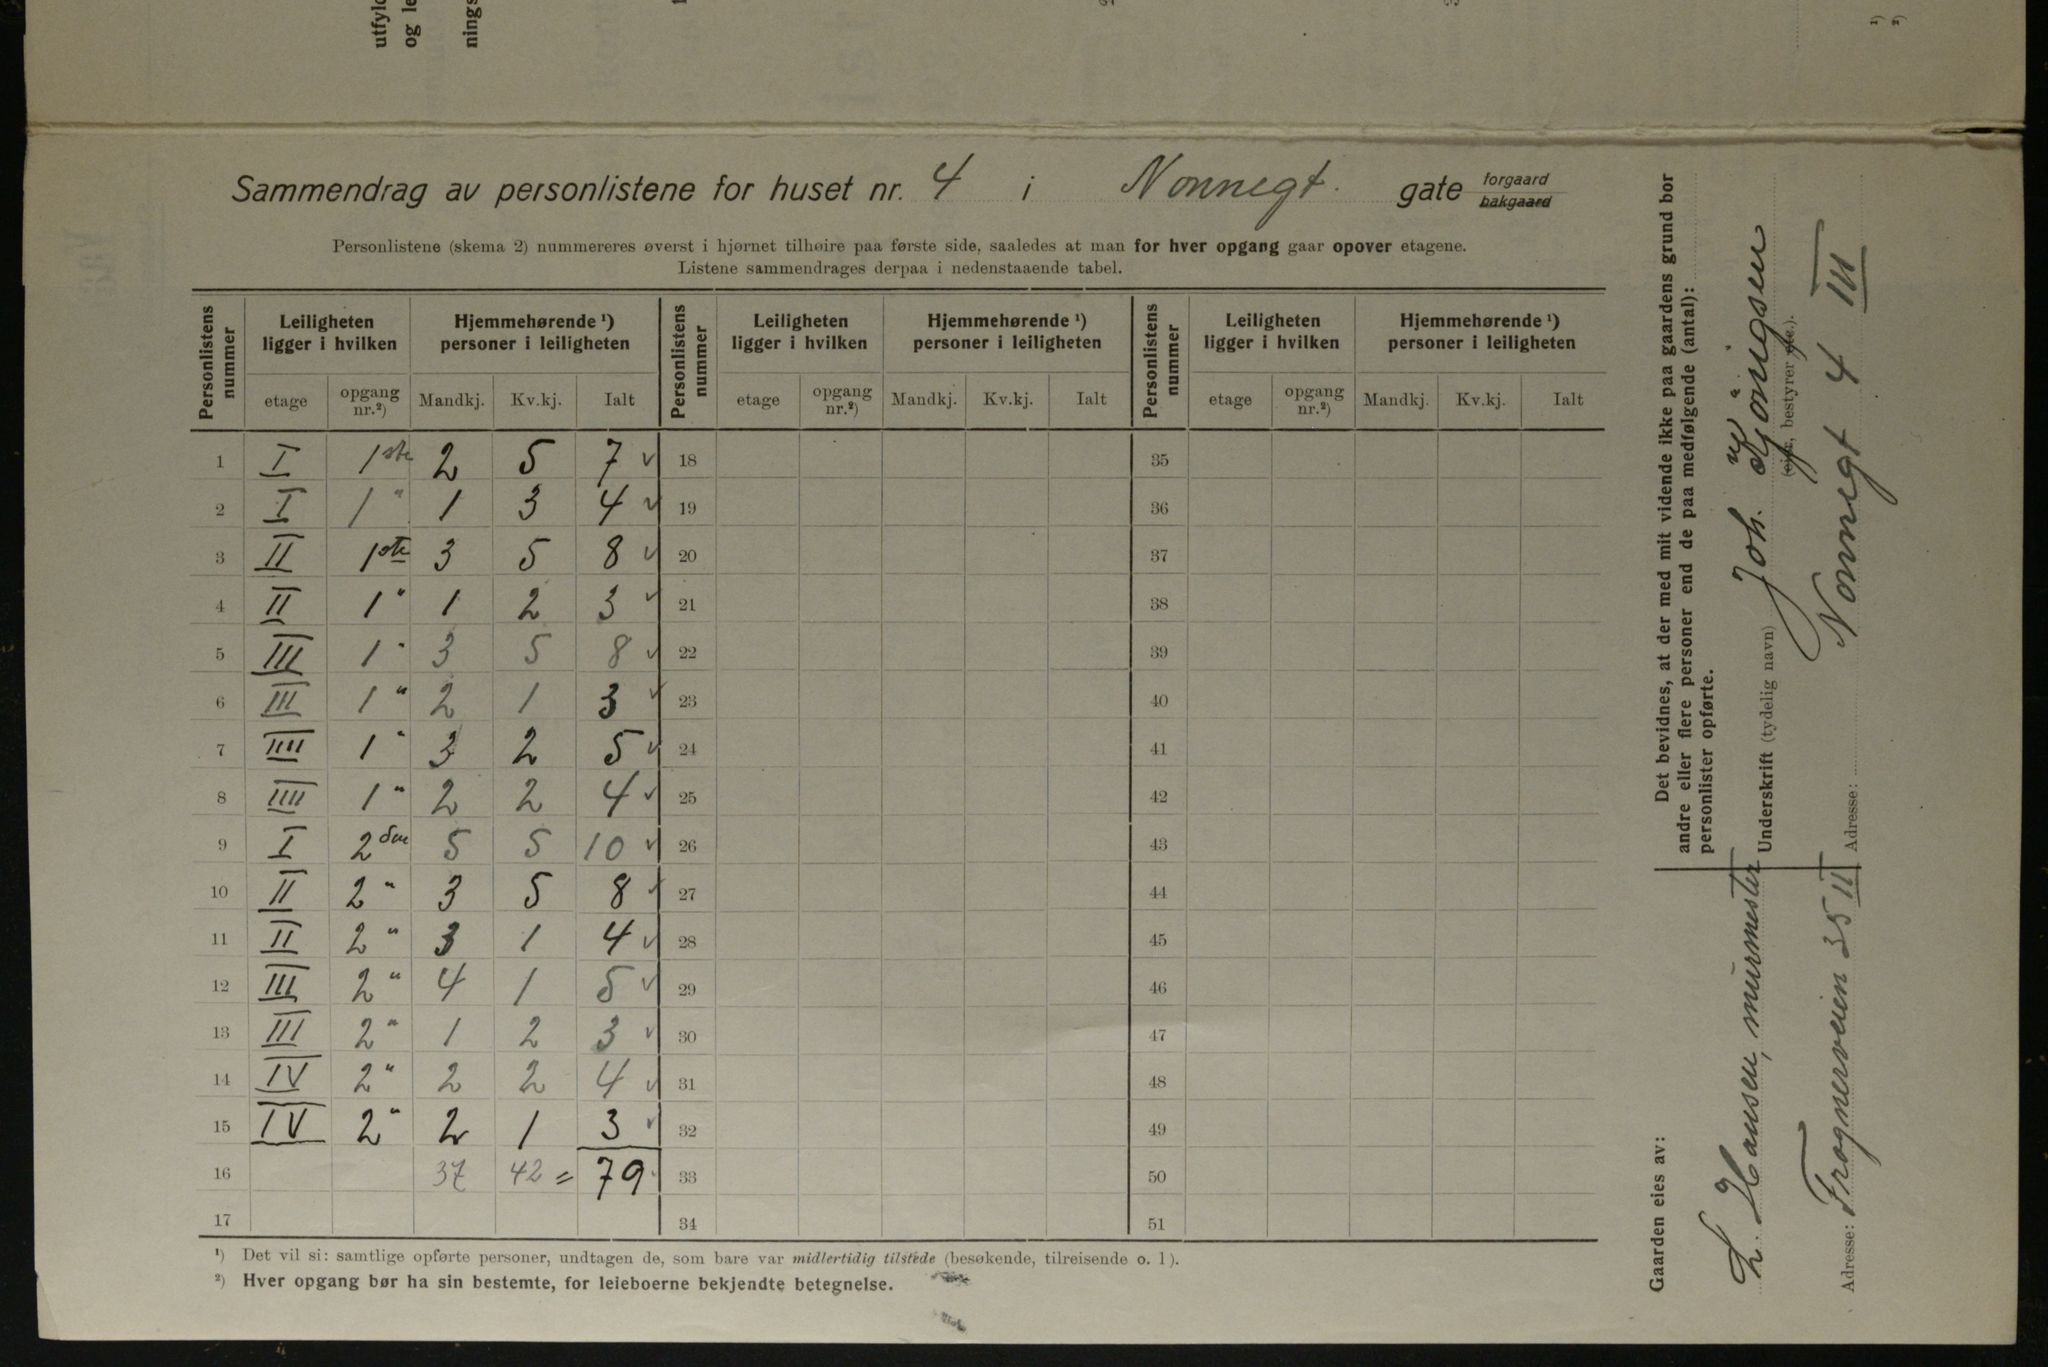 utfyld
og le
nings
Sammendrag av personlistene for huset nr. 4 i Nonnegt. gate forgaard bakgaard
Personlistene (skema 2) nummereres øverst i hjørnet tilhøire paa første side, saaledes at man for hver opgang gaar opover etagene.
Listene sammendrages derpaa i nedenstaaende tabel.
Personlistens nummer | Leiligheten ligger i hvilken | Hjemmehørende ¹) personer i leiligheten | Personlistens nummer | Leiligheten ligger i hvilken | Hjemmehørende ¹) personer i leiligheten | Personlistens nummer | Leiligheten ligger i hvilken | Hjemmehørende ¹) personer i leiligheten
etage | opgang nr.²) | Mandkj. | Kv.kj. | Ialt | etage | opgang nr.²) | Mandkj. | Kv.kj. | Ialt | etage | opgang nr.²) | Mandkj. | Kv.kj. | Ialt
1 I 1ste 2 5 7 ✓ 18 35
2 I 1 " 1 3 4 ✓ 19 36
3 II 1ste 3 5 8 ✓ 20 37
4 II 1 " 1 2 3 ✓ 21 38
5 III 1 " 3 5 8 ✓ 22 39
6 III 1 " 2 1 3 ✓ 23 40
7 IIII 1 " 3 2 5 ✓ 24 41
8 IIII 1 " 2 2 4 ✓ 25 42
9 I 2den 5 5 10 ✓ 26 43
10 II 2 " 3 5 8 ✓ 27 44
11 II 2 " 3 1 4 ✓ 28 45
12 III 2 " 4 1 5 ✓ 29 46
13 III 2 " 1 2 3 ✓ 30 47
14 IV 2 " 2 2 4 ✓ 31 48
15 IV 2 " 2 1 3 ✓ 32 49
16 37 42 = 79 33 50
17 34 51
¹) Det vil si: samtlige opførte personer, undtagen de, som bare var midlertidig tilstede (besøkende, tilreisende o. l).
²) Hver opgang bør ha sin bestemte, for leieboerne bekjendte betegnelse.
Det bevidnes, at der med mit vidende ikke paa gaardens grund bor
andre eller flere personer end de paa medfølgende (antal):
personlister opførte.
Underskrift (tydelig navn) Joh.
(eier, bestyrer etc.).
Adresse: Nonnegt 4 III
Gaarden eies av:
L. Hansen, murmester
Adresse: Frognerveien 35 II
¹)
²)